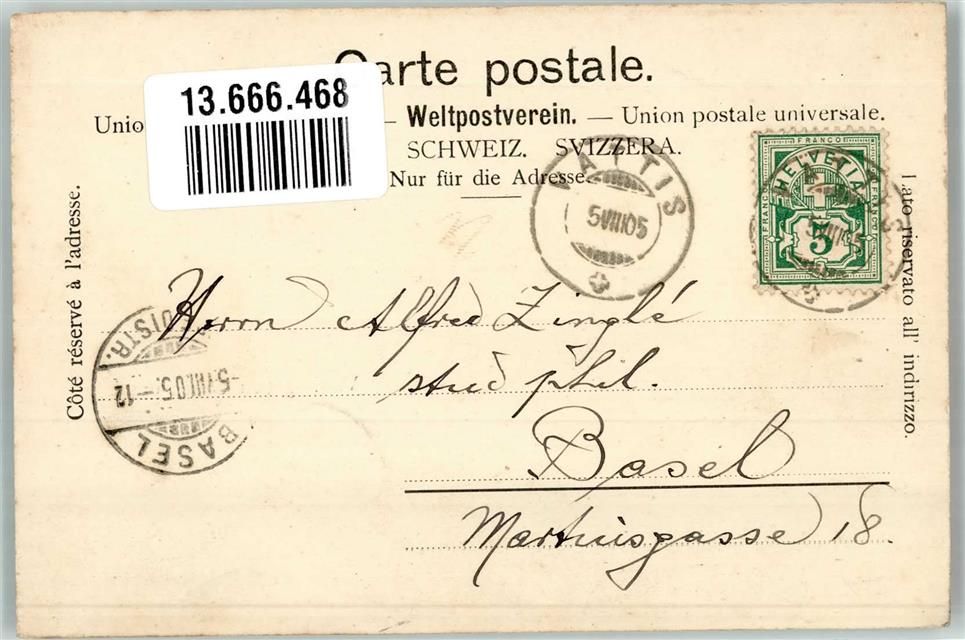 Carte postale.
13.666.468
Weltpostverein. — Union postale universale.
SCHWEIZ. SVIZZERA.
Nur für die Adresse.
Côté réservé à l'adresse.
Lato riservato all' indirizzo.
FRANCO
HELVETIA
FRANCO
FRANCO
5
5 VIII 05
BASEL
5.VIII.05.–12
Herrn Alfred Zinglé
stud phil.
Basel
Martinsgasse 18.